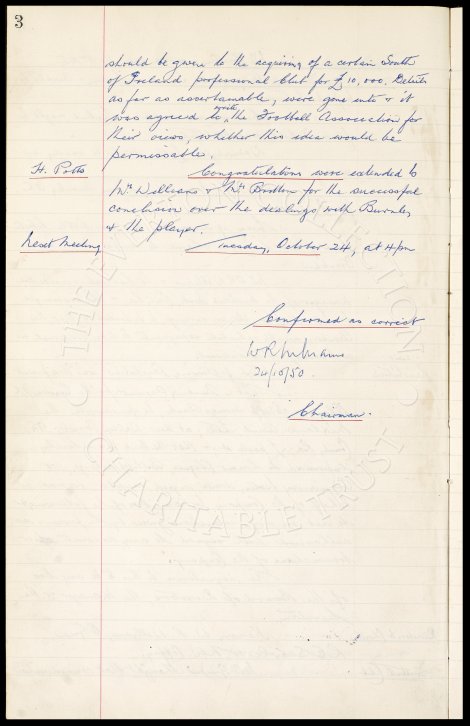 3
should be given to the acquiring of a certain South
of Ireland professional Club for £10,000. Details
as far as ascertainable, were gone into & it
was agreed to write the Football Association for
their views, whether this idea would be
permissable.
H. Potts Congratulations were extended to
Mr Williams & Mr Britton for the successful
conclusion over the dealings with Burnley
& the player.
Next Meeting Tuesday, October 24, at 4pm
Confirmed as correct
W R Williams
24/10/50
Chairman.
THE EV COLLECTION
CHARITABLE TRUST